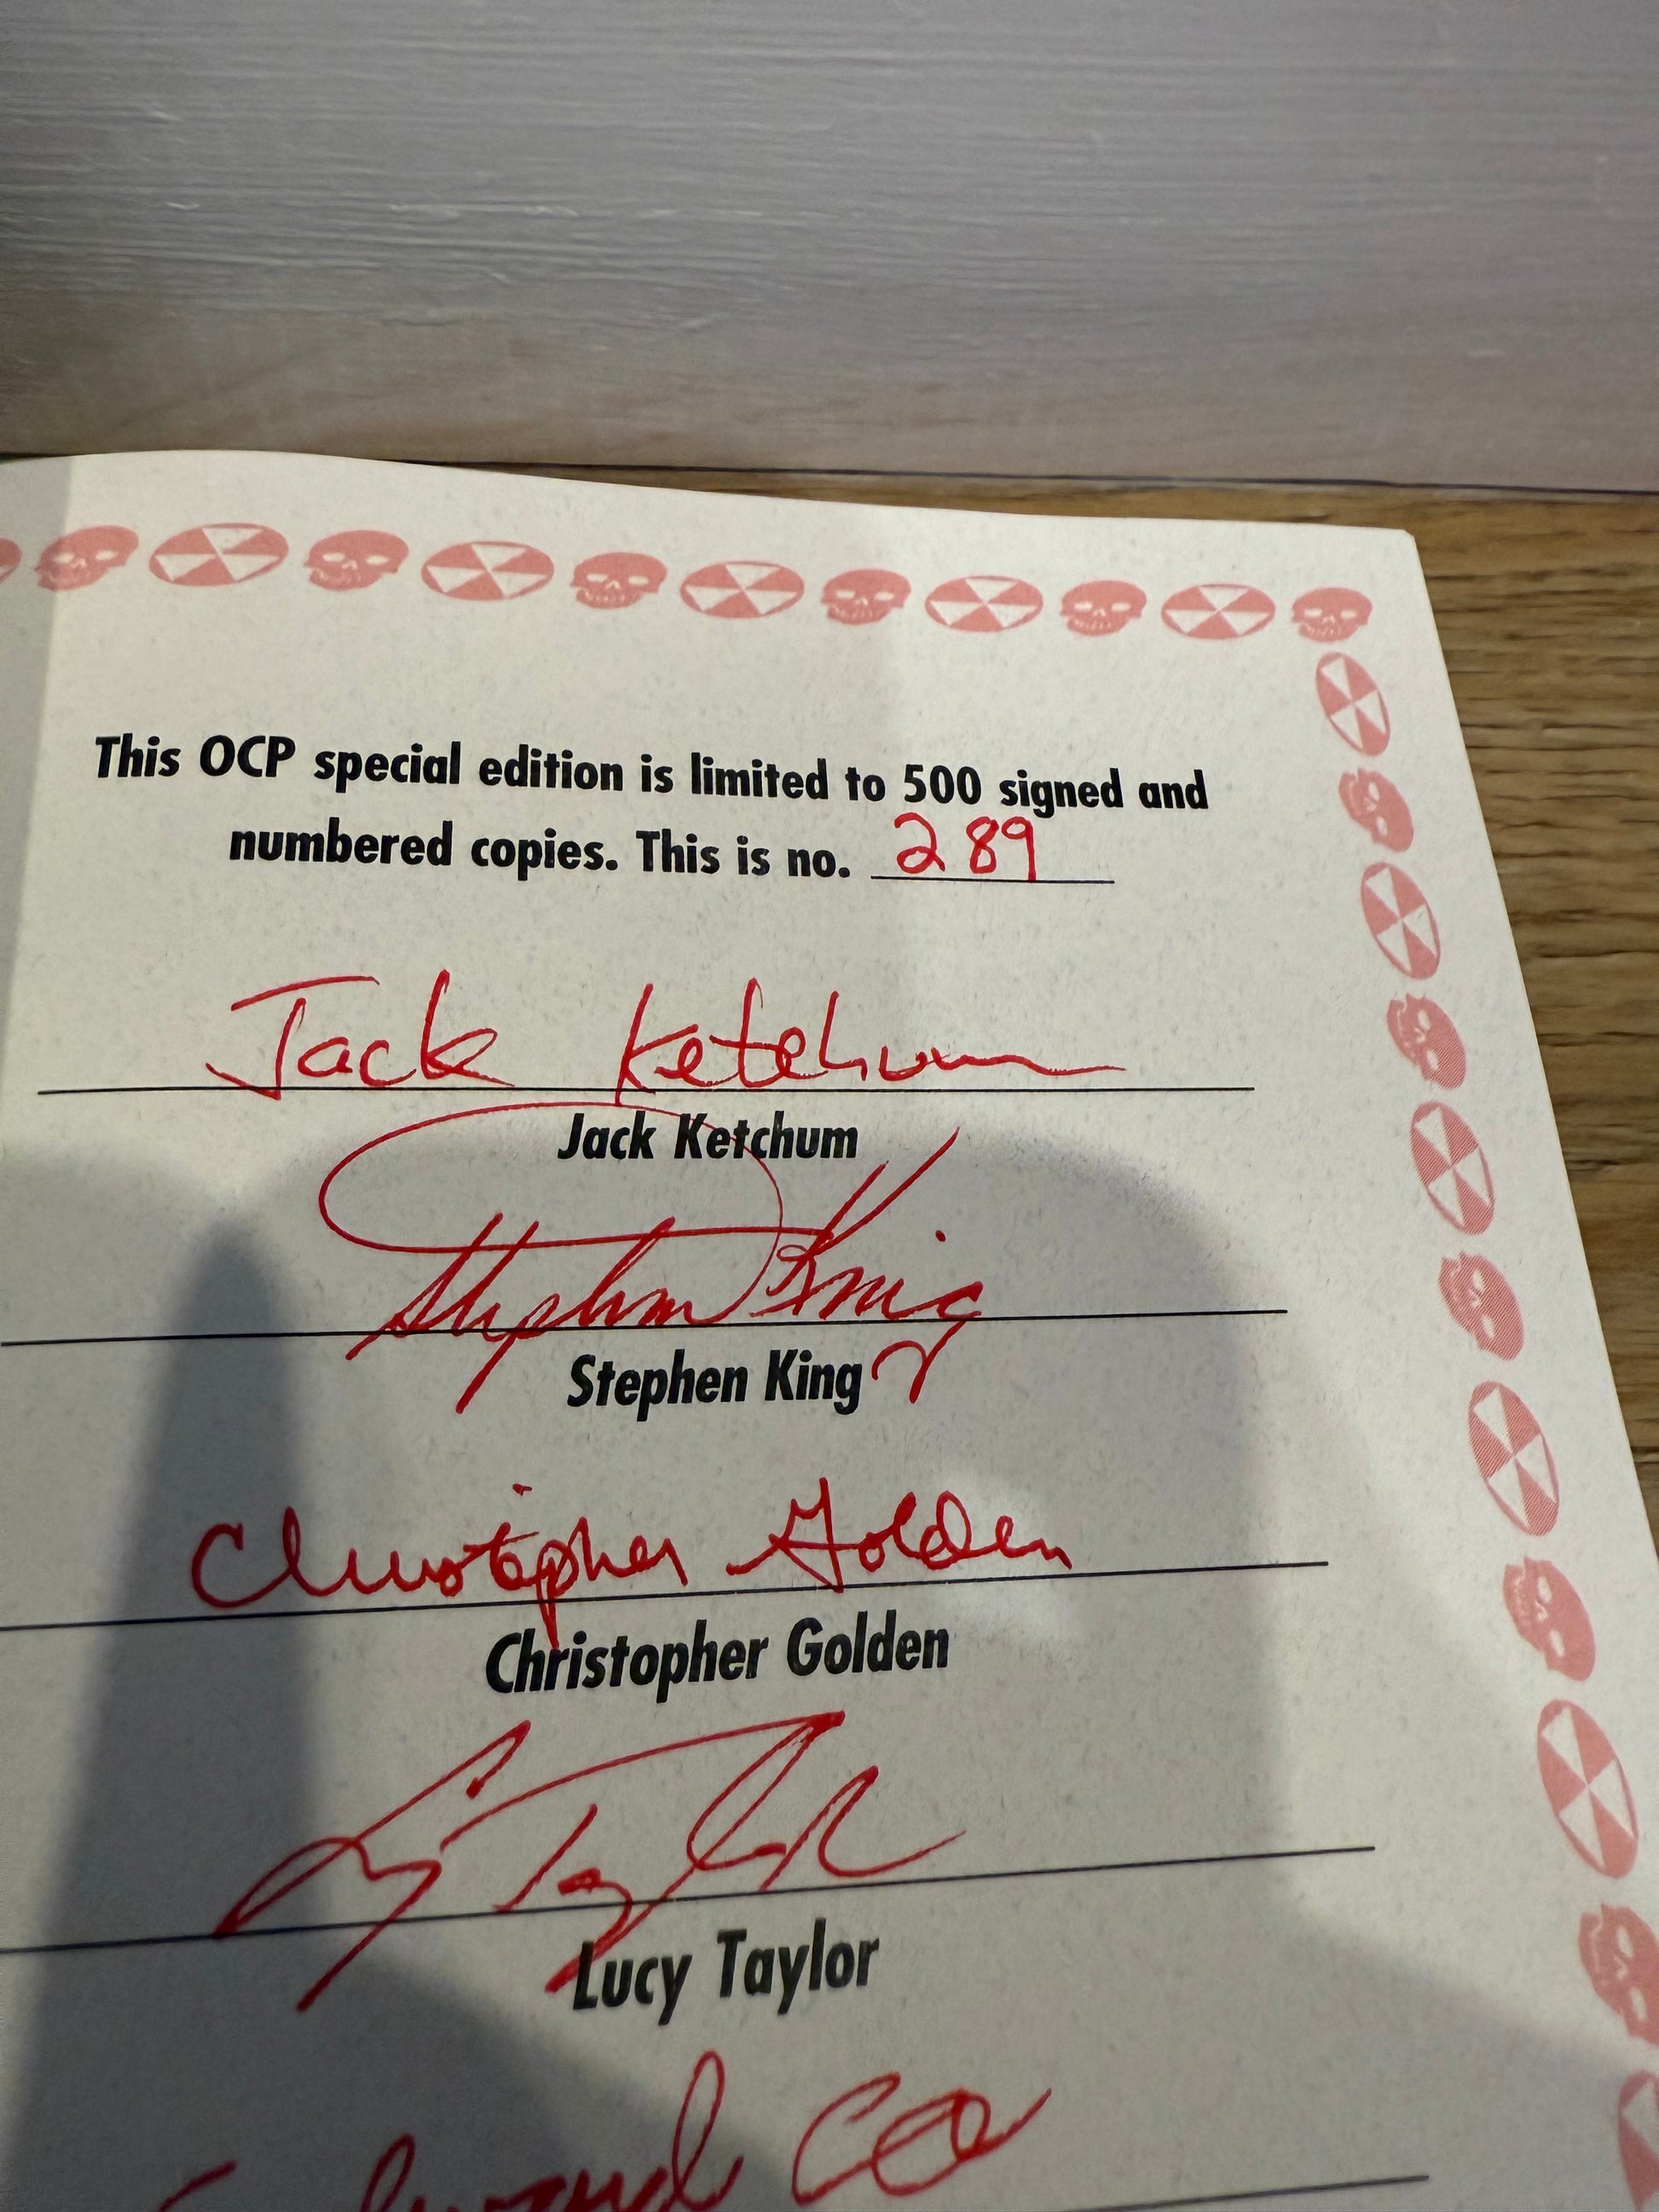 This OCP special edition is limited to 500 signed and
numbered copies. This is no. 289
Jack Ketchum
Jack Ketchum
Stephen King
Stephen King
Christopher Golden
Christopher Golden
Lucy Taylor
Lucy Taylor